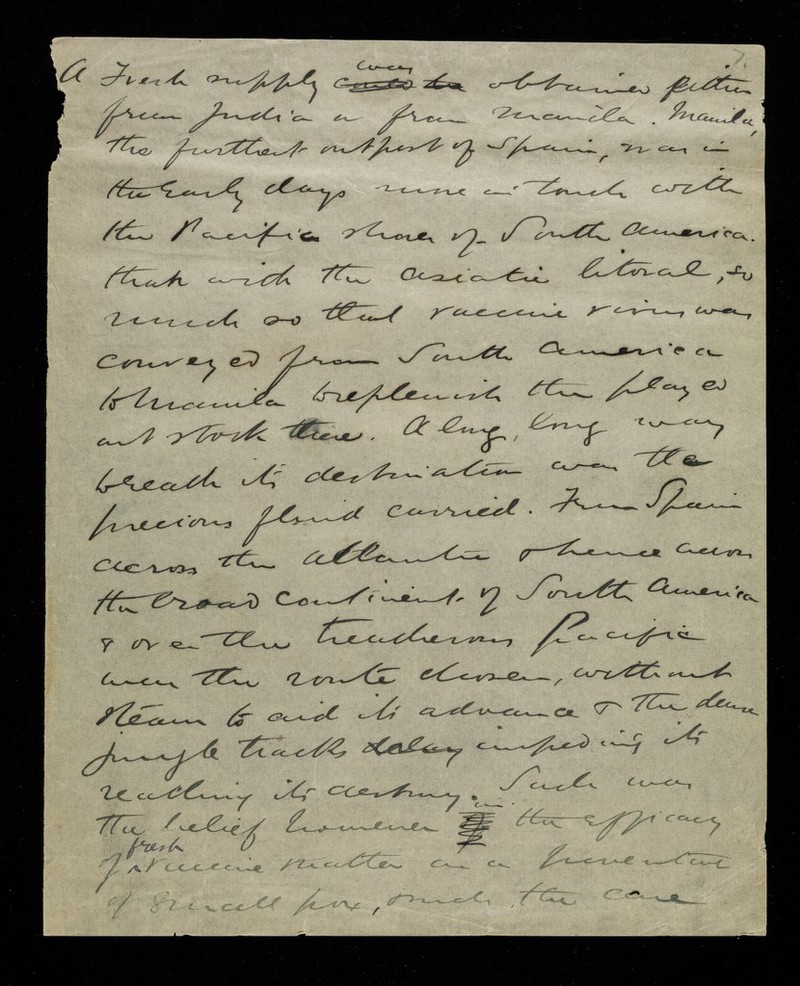 7.
A Fresh supply was could be obtained either
from India or from Manila. Manila,
the furthest outpost of Spain, was in
the early days more in touch with
the Pacific shores of South America.
than with the asiatic litoral, so
much so that vaccine virus was
conveyed from South America
to Manila to replenish the played
out stock there. A long, long way
to reach its destination was the
precious fluid carried. From Spain
across the Atlantic & thence across
the broad continent of South America
& over the treacherous Pacific
was the route chosen, without
steam to aid its advance & the dense
jungle tracks delay impeding its
reaching its destiny. Such was
the belief however in the efficacy
of fresh vaccine matter as a preventive
of small pox, & such the care